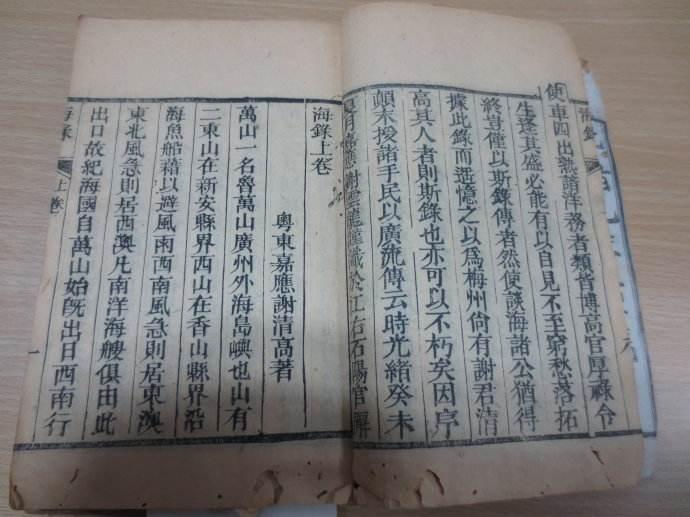 海錄
使車四出熟諸洋務者類皆博高官厚祿令
生逢其盛必能有以自見不至窮愁落拓
終豈僅以斯錄傳者然使談海諸公猶得
據此錄而追憶之以爲梅州尚有謝君清
高其人者則斯錄也亦可以不朽矣因序
顛末授諸手民以廣流傳云時光緒癸未
月嘉應謝雲龍謹識於江右石陽官廨
海錄上卷
粵東嘉應謝清高著
萬山一名魯萬山廣州外海島嶼也山有
二東山在新安縣界西山在香山縣界沿
海魚船藉以避風雨西南風急則居東澳
東北風急則居西澳凡南洋海艘俱由此
出口故紀海國自萬山始旣出口西南行
海錄
上卷
一